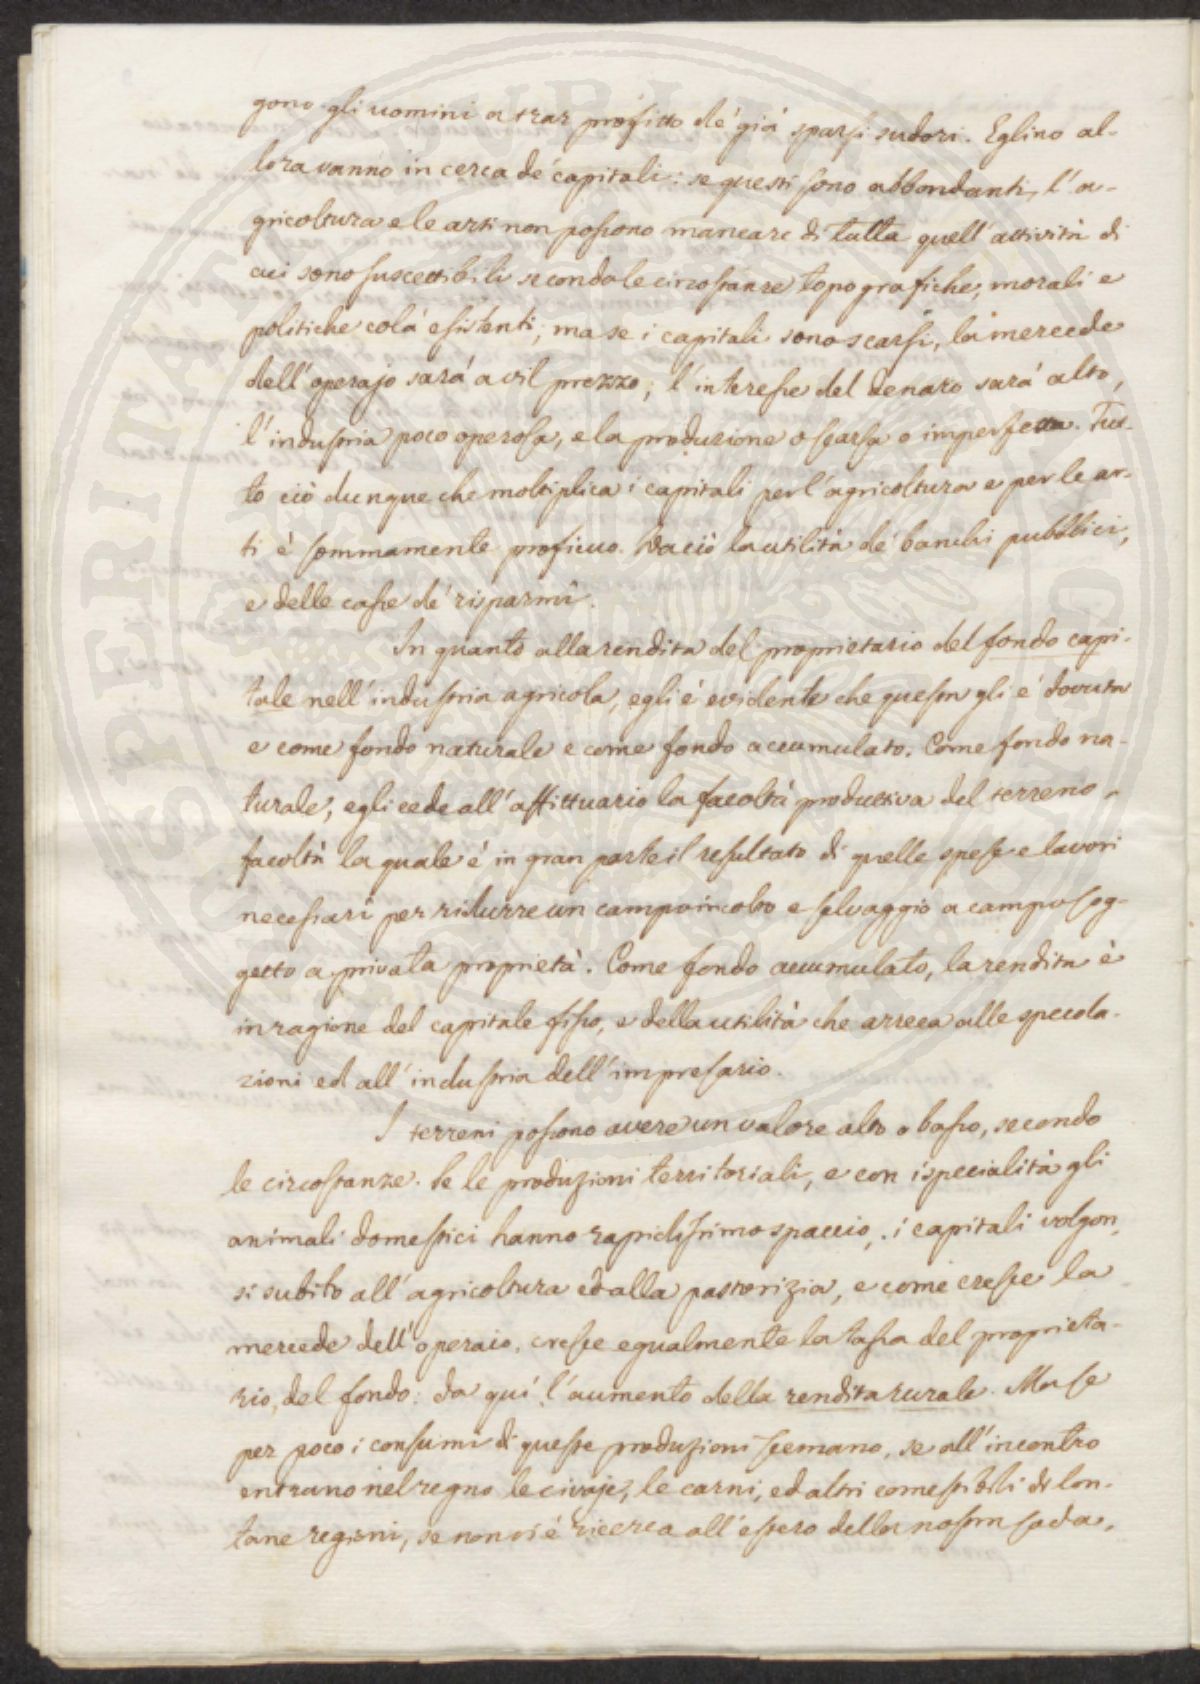 gono gli uomini a trar profitto de' già sparsi sudori. Eglino al-
lora vanno in cerca de' capitali: se questi sono abbondanti, l'a-
gricoltura e le arti non possono mancare di tutta quell'attività di
cui sono suscettibili secondo le circostanze topografiche, morali e
politiche colà esistenti; ma se i capitali sono scarsi, la mercede
dell'operajo sarà a vil prezzo; l'interesse del denaro sarà alto,
l'industria poco operosa, e la produzione o scarsa o imperfetta. Tut-
to ciò dunque che moltiplica i capitali per l'agricoltura e per le ar-
ti è sommamente proficuo. Da ciò la utilità de' banchi pubblici,
e delle casse de' risparmî.
In quanto alla rendita del proprietario del fondo capi-
tale nell'industria agricola, egli è evidente che questa gli è dovuta
e come fondo naturale e come fondo accumulato. Come fondo na-
turale, egli cede all'affittuario la facoltà produttiva del terreno,
facoltà la quale è in gran parte il resultato di quelle spese e lavori
necessarî per ridurre un campo incolto e selvaggio a campo sog-
getto a privata proprietà. Come fondo accumulato, la rendita è
in ragione del capitale fisso, e della utilità che arreca alle specola-
zioni ed all'industria dell'impresario.
I terreni possono avere un valore alto o basso, secondo
le circostanze. Se le produzioni territoriali, e con ispecialità gli
animali domestici hanno rapidissimo spaccio, i capitali volgon-
si subito all'agricoltura ed alla pastorizia, e come cresce la
mercede dell'operaio, cresce egualmente la tassa del proprieta-
rio del fondo: da qui l'aumento della rendita rurale. Ma se
per poco i consumi di queste produzioni scemano, se all'incontro
entrano nel regno le civaje, le carni, ed altri comestibili di lon-
tane regioni, se non vi è ricerca all'estero della nostra soda,